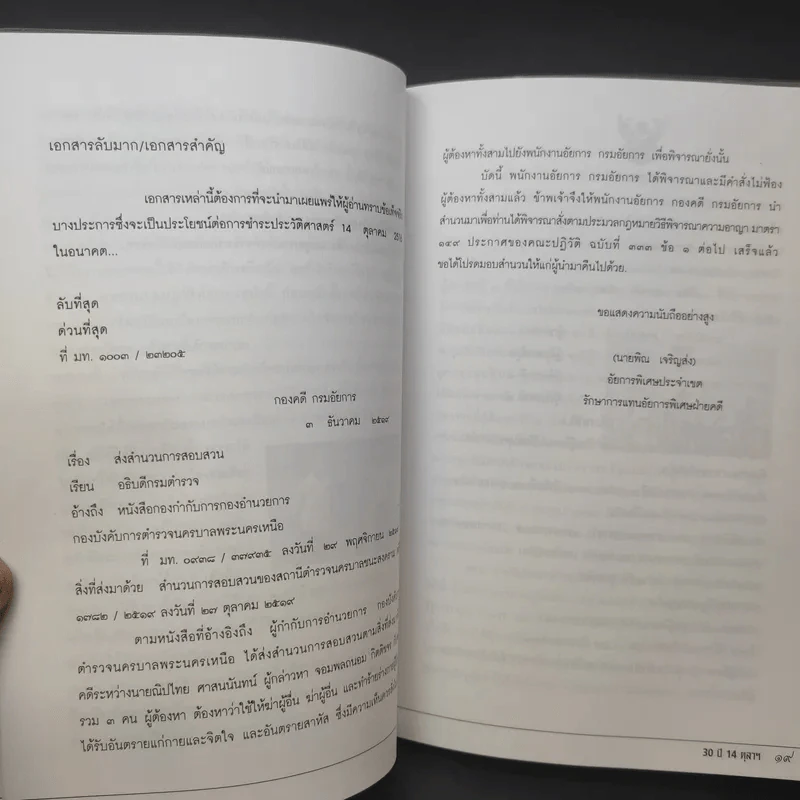 เอกสารลับมาก/เอกสารสำคัญ
เอกสารเหล่านี้ต้องการที่จะนำมาเผยแพร่ให้ผู้อ่านทราบข้อเท็จจริง
บางประการซึ่งจะเป็นประโยชน์ต่อการชำระประวัติศาสตร์ 14 ตุลาคม
ในอนาคต...
ลับที่สุด
ด่วนที่สุด
ที่ มท. ๑๐๐๓ / ๒๓๒๐๕
กองคดี กรมอัยการ
๓ ธันวาคม ๒๕๑๙
เรื่อง ส่งสำนวนการสอบสวน
เรียน อธิบดีกรมตำรวจ
อ้างถึง หนังสือกองกำกับการกองอำนวยการ
กองบังคับการตำรวจนครบาลพระนครเหนือ
ที่ มท. ๐๙๓๘ / ๓๗๙๓๕ ลงวันที่ ๒๙ พฤศจิกายน
สิ่งที่ส่งมาด้วย สำนวนการสอบสวนของสถานีตำรวจนครบาลชนะสงคราม
๑๗๘๒ / ๒๕๑๙ ลงวันที่ ๒๗ ตุลาคม ๒๕๑๙
ตามหนังสือที่อ้างอิงถึง ผู้กำกับการอำนวยการ
ตำรวจนครบาลพระนครเหนือ ได้ส่งสำนวนการสอบสวนตามสิ่งที่ส่ง
คดีระหว่างนายณิปไทย ศาสนนันทน์ ผู้กล่าวหา จอมพลถนอม กิตติขจร
รวม ๓ คน ผู้ต้องหา ต้องหาว่าใช้ให้ฆ่าผู้อื่น ฆ่าผู้อื่น และทำร้ายร่างกาย
ได้รับอันตรายแก่กายและจิตใจ และอันตรายสาหัส ซึ่งมีความเห็นควร
ผู้ต้องหาทั้งสามไปยังพนักงานอัยการ กรมอัยการ เพื่อพิจารณายั่งนั้น
บัดนี้ พนักงานอัยการ กรมอัยการ ได้พิจารณาและมีคำสั่งไม่ฟ้อง
ผู้ต้องหาทั้งสามแล้ว ข้าพเจ้าจึงให้พนักงานอัยการ กองคดี กรมอัยการ นำ
สำนวนมาเพื่อท่านได้พิจารณาสั่งตามประมวลกฎหมายวิธีพิจารณาความอาญา มาตรา
๑๔๙ ประกาศของคณะปฏิวัติ ฉบับที่ ๓๓๓ ข้อ ๑ ต่อไป เสร็จแล้ว
ขอได้โปรดมอบสำนวนให้แก่ผู้นำมาคืนไปด้วย.
ขอแสดงความนับถืออย่างสูง
(นายพิณ เจริญส่ง)
อัยการพิเศษประจำเขต
รักษาการแทนอัยการพิเศษฝ่ายคดี
30 ปี 14 ตุลาฯ ๑๙